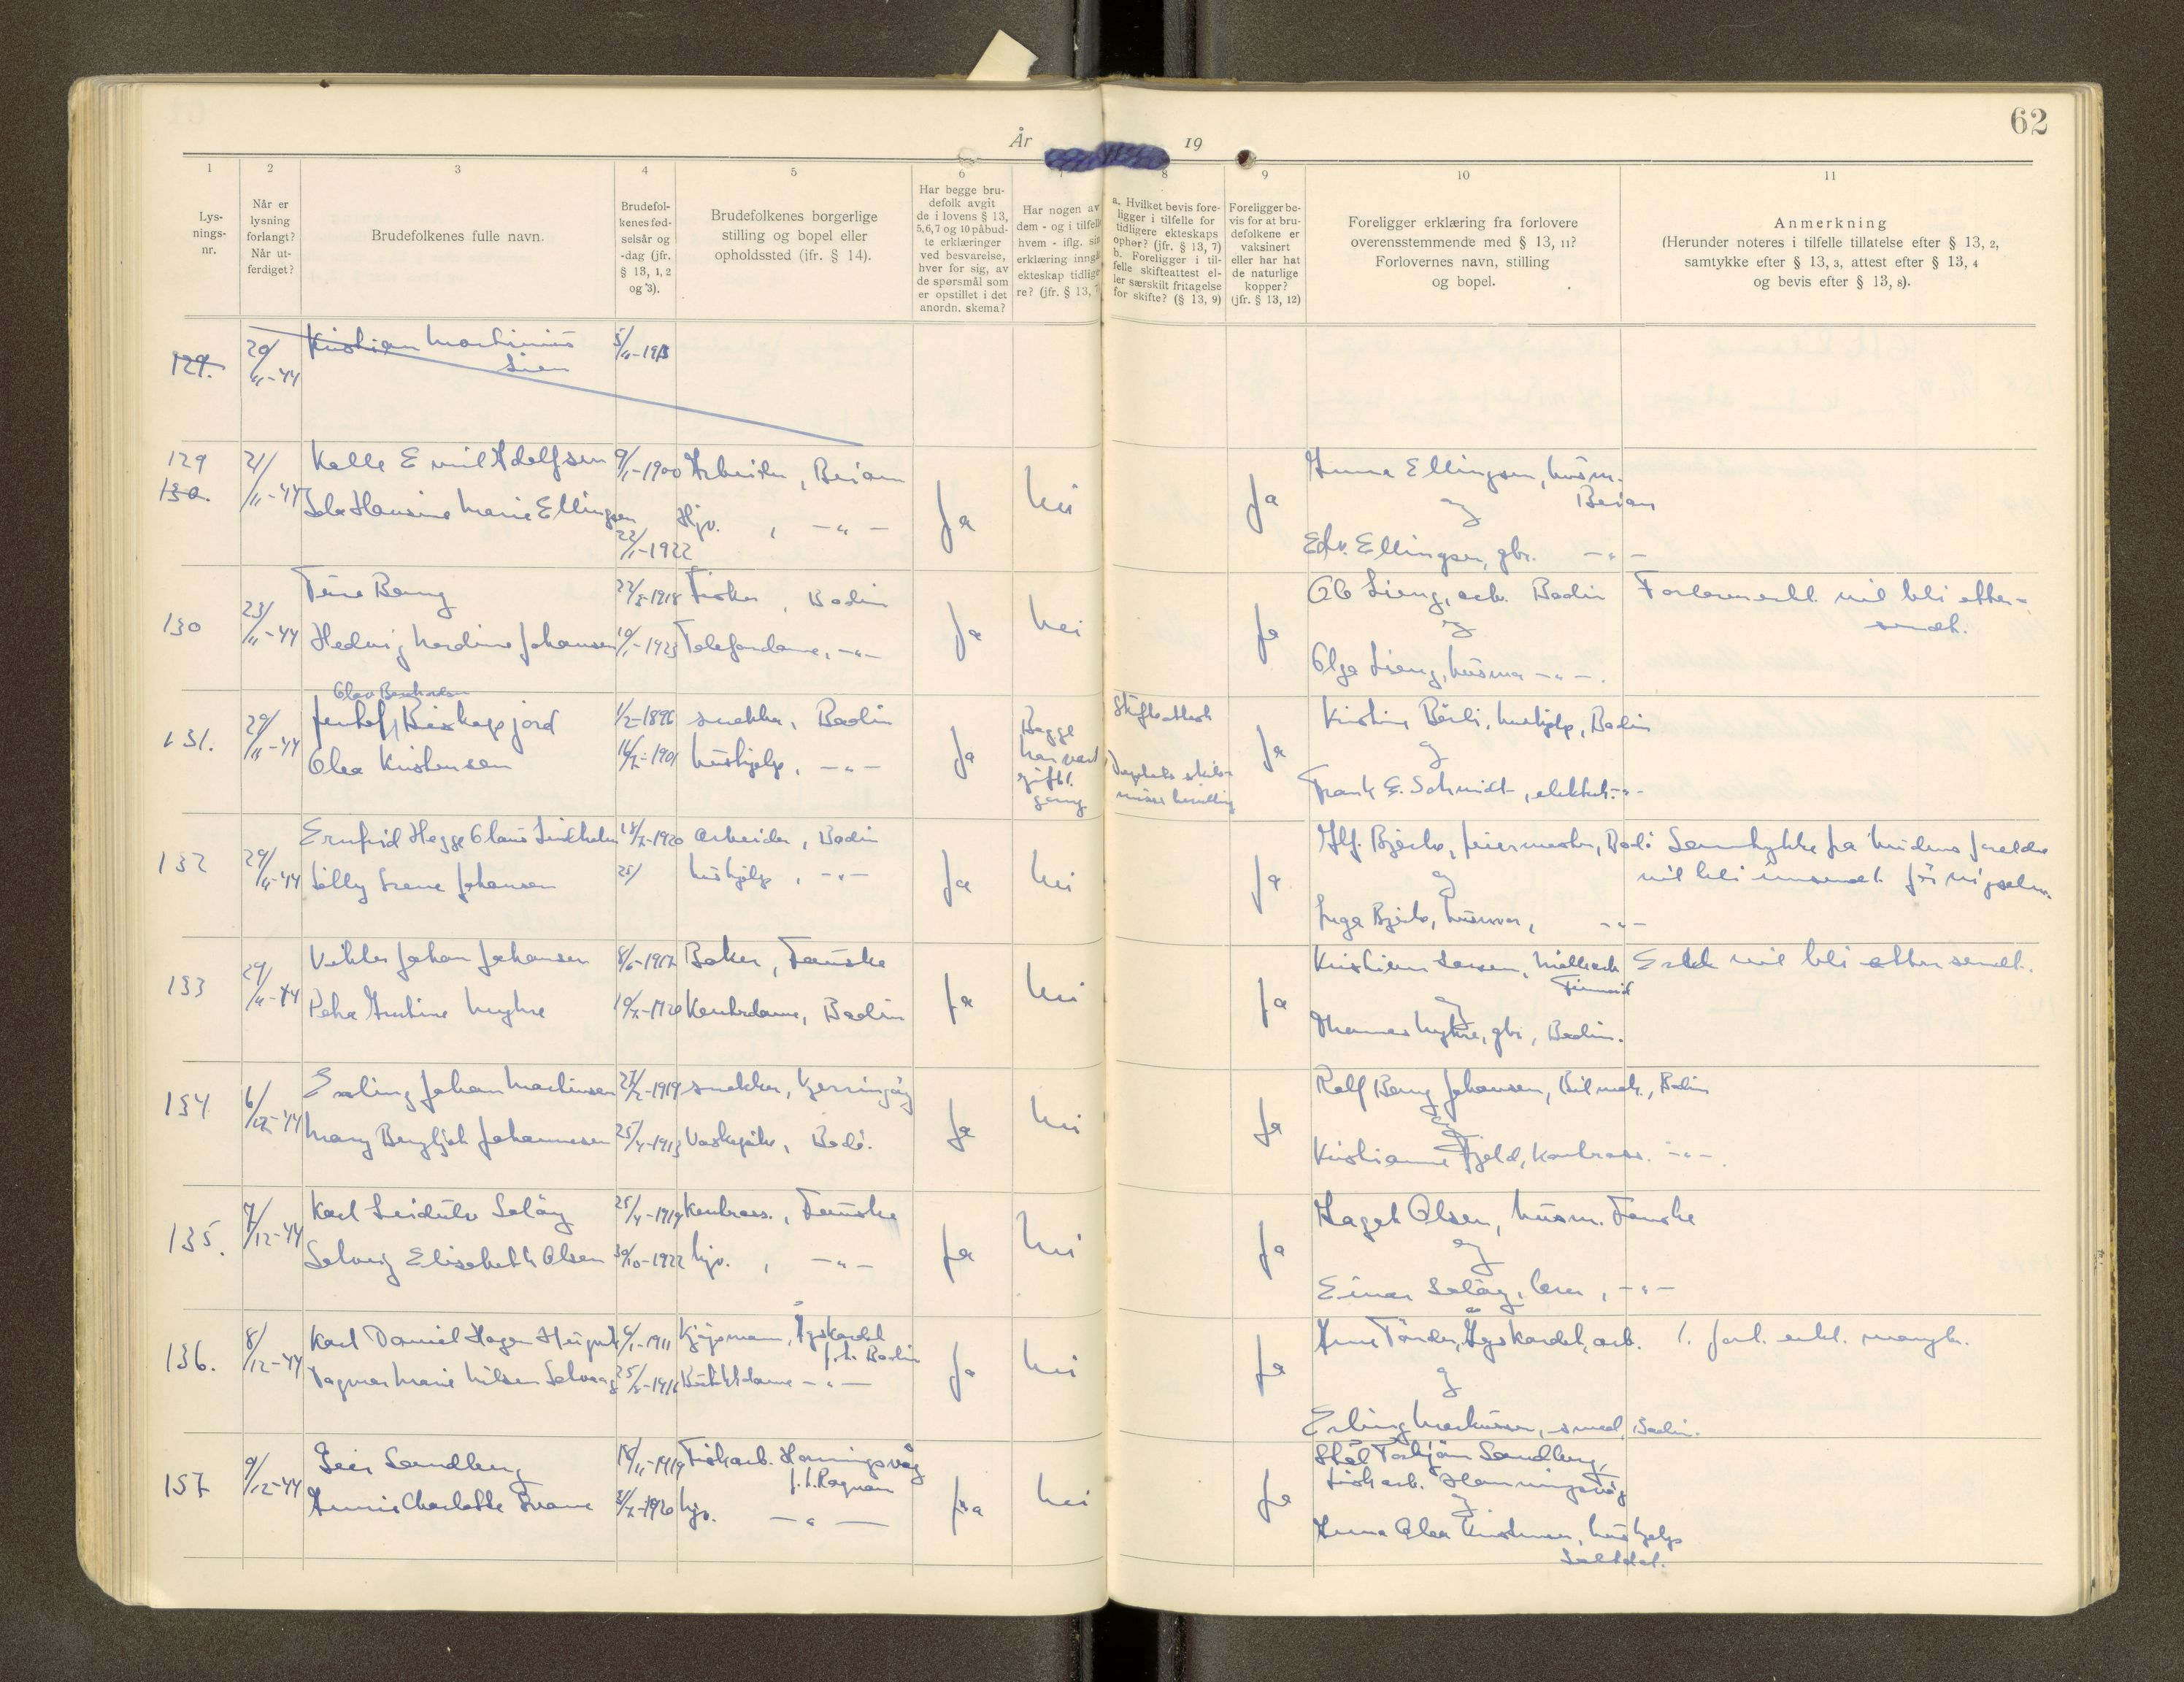 62
År 19
1 2 3 4 5 6 7 8 9 10 11
Lys-
nings-
nr.
Når er
lysning
forlangt?
Når ut-
ferdiget?
Brudefolkenes fulle navn.
Brudefol-
kenes fød-
selsår og
-dag (jfr.
§ 13, 1, 2
og 3).
Brudefolkenes borgerlige
stilling og bopel eller
opholdssted (ifr. § 14).
Har begge bru-
defolk avgit
de i lovens § 13,
5,6,7 og 10 påbud-
te erklæringer
ved besvarelse,
hver for sig, av
de spørsmål som
er opstillet i det
anordn. skema?
Har nogen av
dem - og i tilfelle
hvem - iflg. sin
erklæring inngå
ekteskap tidlige-
re? (jfr. § 13, 7
a. Hvilket bevis fore-
ligger i tilfelle for
tidligere ekteskaps
ophør? (jfr. § 13, 7)
b. Foreligger i til-
felle skifteattest el-
ler særskilt fritagelse
for skifte? (§ 13, 9)
Foreligger be-
vis for at bru-
defolkene er
vaksinert
eller har hat
de naturlige
kopper?
(jfr. § 13, 12)
Foreligger erklæring fra forlovere
overensstemmende med § 13, 11?
Forlovernes navn, stilling
og bopel.
Anmerkning
(Herunder noteres i tilfelle tillatelse efter § 13, 2,
samtykke efter § 13, 3, attest efter § 13, 4
og bevis efter § 13, 8).
129. 20/11-44 Kristian Martinius 5/11-1913
Lien
129 21/11-44 Kalle Emil Adolfsen 9/1-1900 Arbeider, Beiarn Ja Nei Ja Anna Ellingsen, husm.
130. Hansine Marie Ellingsen 22/1-1922 Hjv. , -"- og Beiarn
Edv. Ellingsen, gbr. -"-
130 23/11-44 Berg 22/8-1918 Fisker, Bodin Ja Nei Ja Lieng, arb. Bodin Forlovererkl. vil bli etter-
sendt.
Hedvig Nordine Johansen 10/1-1923 Telefondame, -"- og
Olga Lieng, husmor -"-.
131. 29/11-44 Olav Bernhardsen
Biskopsjord 1/2-1896 snekker, Bodin Ja Begge har vært gift 1. gang Skifteattest Ja Kristine , hushjelp, Bodin
Olea Kristensen 16/7-1901 hushjelp, -"- bevilling og
Frank E. Schmidt, -"-
132 29/11-44 Ernfrid Hegge Olaus Lindholm 18/7-1920 arbeider, Bodin Ja Nei Ja Alf. , feiermester, Bodø Samtykke fra brudens foreldre
vil bli innsendt før vigselen.
Johansen 25/ hushjelp, -"- og
Inga , husmor, -"-
133 29/11-44 Viktor Johan Johansen 8/6-1917 Baker, Fauske Ja Nei Ja Kristian Larsen, Erkl. vil bli ettersendt.
Finneid
Petra Justine Myhre 10/7-1920 Kontordame, Bodin og
Myhre, gbr, Bodin.
134 6/12-44 Erling Johan Martinsen 27/2-1919 snekker, Kjerringøy Ja Nei Ja Rolf Berg Johansen, Bilmek., Bodin
Mary Bergljot Johannesen 25/4-1913 , Bodø. og
Kristianne Fjeld, kontorass. -"-.
135. 7/12-44 Karl Leidulv Seløy 25/4-1919 Kontorass., Fauske Ja Nei Ja Olsen, husm. Fauske
Solveig Elisabeth Olsen 30/10-1922 hjv. , -"- og
Einar Seløy, lærer, -"-
136. 8/12-44 Karl Daniel Hagen 6/1-1911 Kjøpmann, Ågskardet Ja Nei Ja Arne , Ågskardet, arb. 1. forl. erkl. mangler.
f.t. Bodin
Dagmar Marie Nilsen Selvaag 25/8-1916 Butikkdame -"- og
Erling Markussen, smed, Bodin.
137 9/12-44 Geir Sandberg 18/11-1919 Fiskarb. Honningsvåg Ja Nei Ja Torbjørn Sandberg,
f.t. Rognan fiskarb. Honningsvåg
Annie Charlotte 3/7-1920 hjv. -"- og
Anna Olea , hushjelp
Saltdal.